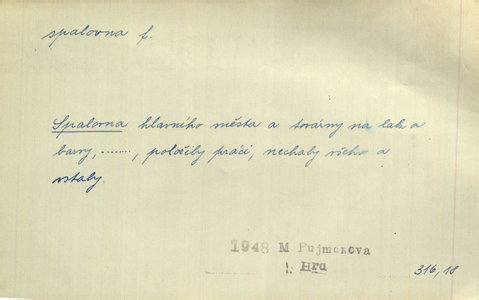 spalovna f.
Spalovna hlavního města a továrny na lak a
barvy, ......., položily práci, nechaly všeho a
vstaly.
1948 M Pujmanova
Hra
316, 18